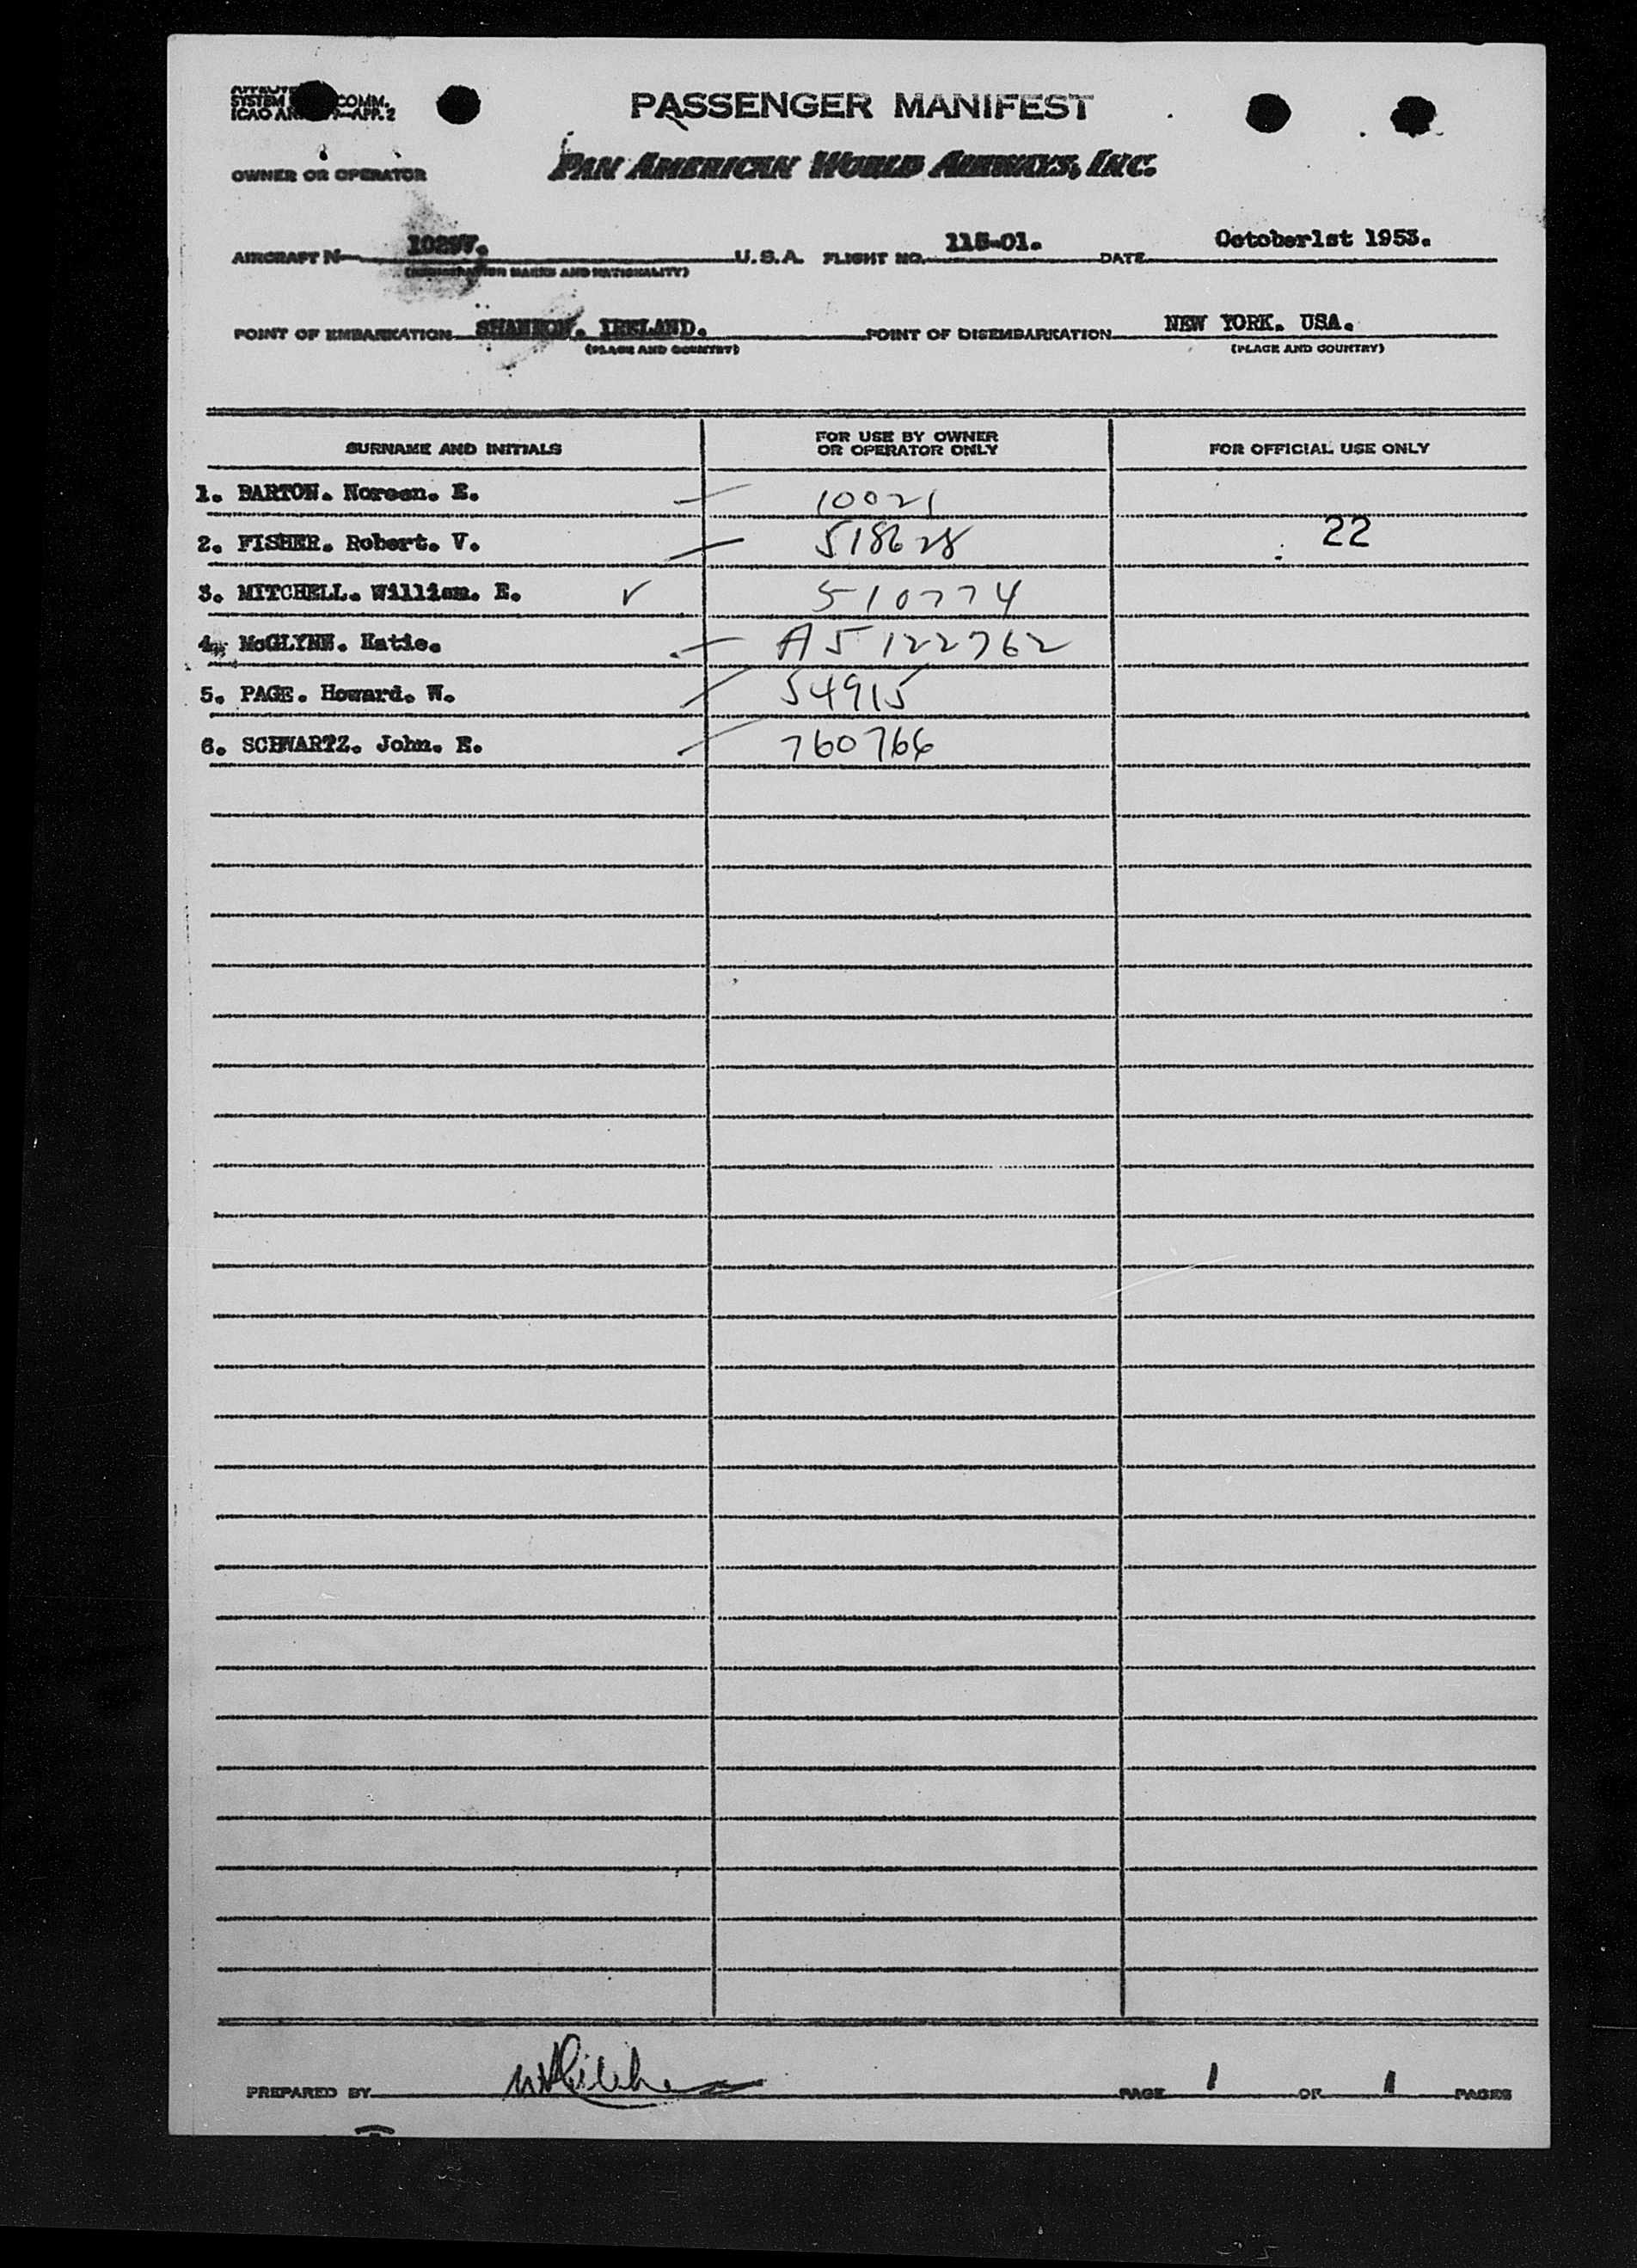 SYSTEM COMM.
ICAO AN 9-APP. 2
PASSENGER MANIFEST
OWNER OR OPERATOR PAN AMERICAN WORLD AIRWAYS, INC.
AIRCRAFT N 1029V. U.S.A. FLIGHT NO. 115-01. DATE October1st 1953.
(REGISTRATION MARKS AND NATIONALITY)
POINT OF EMBARKATION SHANNON. IRELAND. POINT OF DISEMBARKATION NEW YORK. USA.
(PLACE AND COUNTRY) (PLACE AND COUNTRY)
SURNAME AND INITIALS FOR USE BY OWNER OR OPERATOR ONLY FOR OFFICIAL USE ONLY
1. BARTON. Noreen. E. 10021
2. FISHER. Robert. V. 518628 22
3. MITCHELL. William. E. ✓ 510774
4. McGLYNN. Katie. A5122762
5. PAGE. Howard. W. 54915
6. SCHWARTZ. John. E. 760766
PREPARED BY PAGE 1 OF 1 PAGES